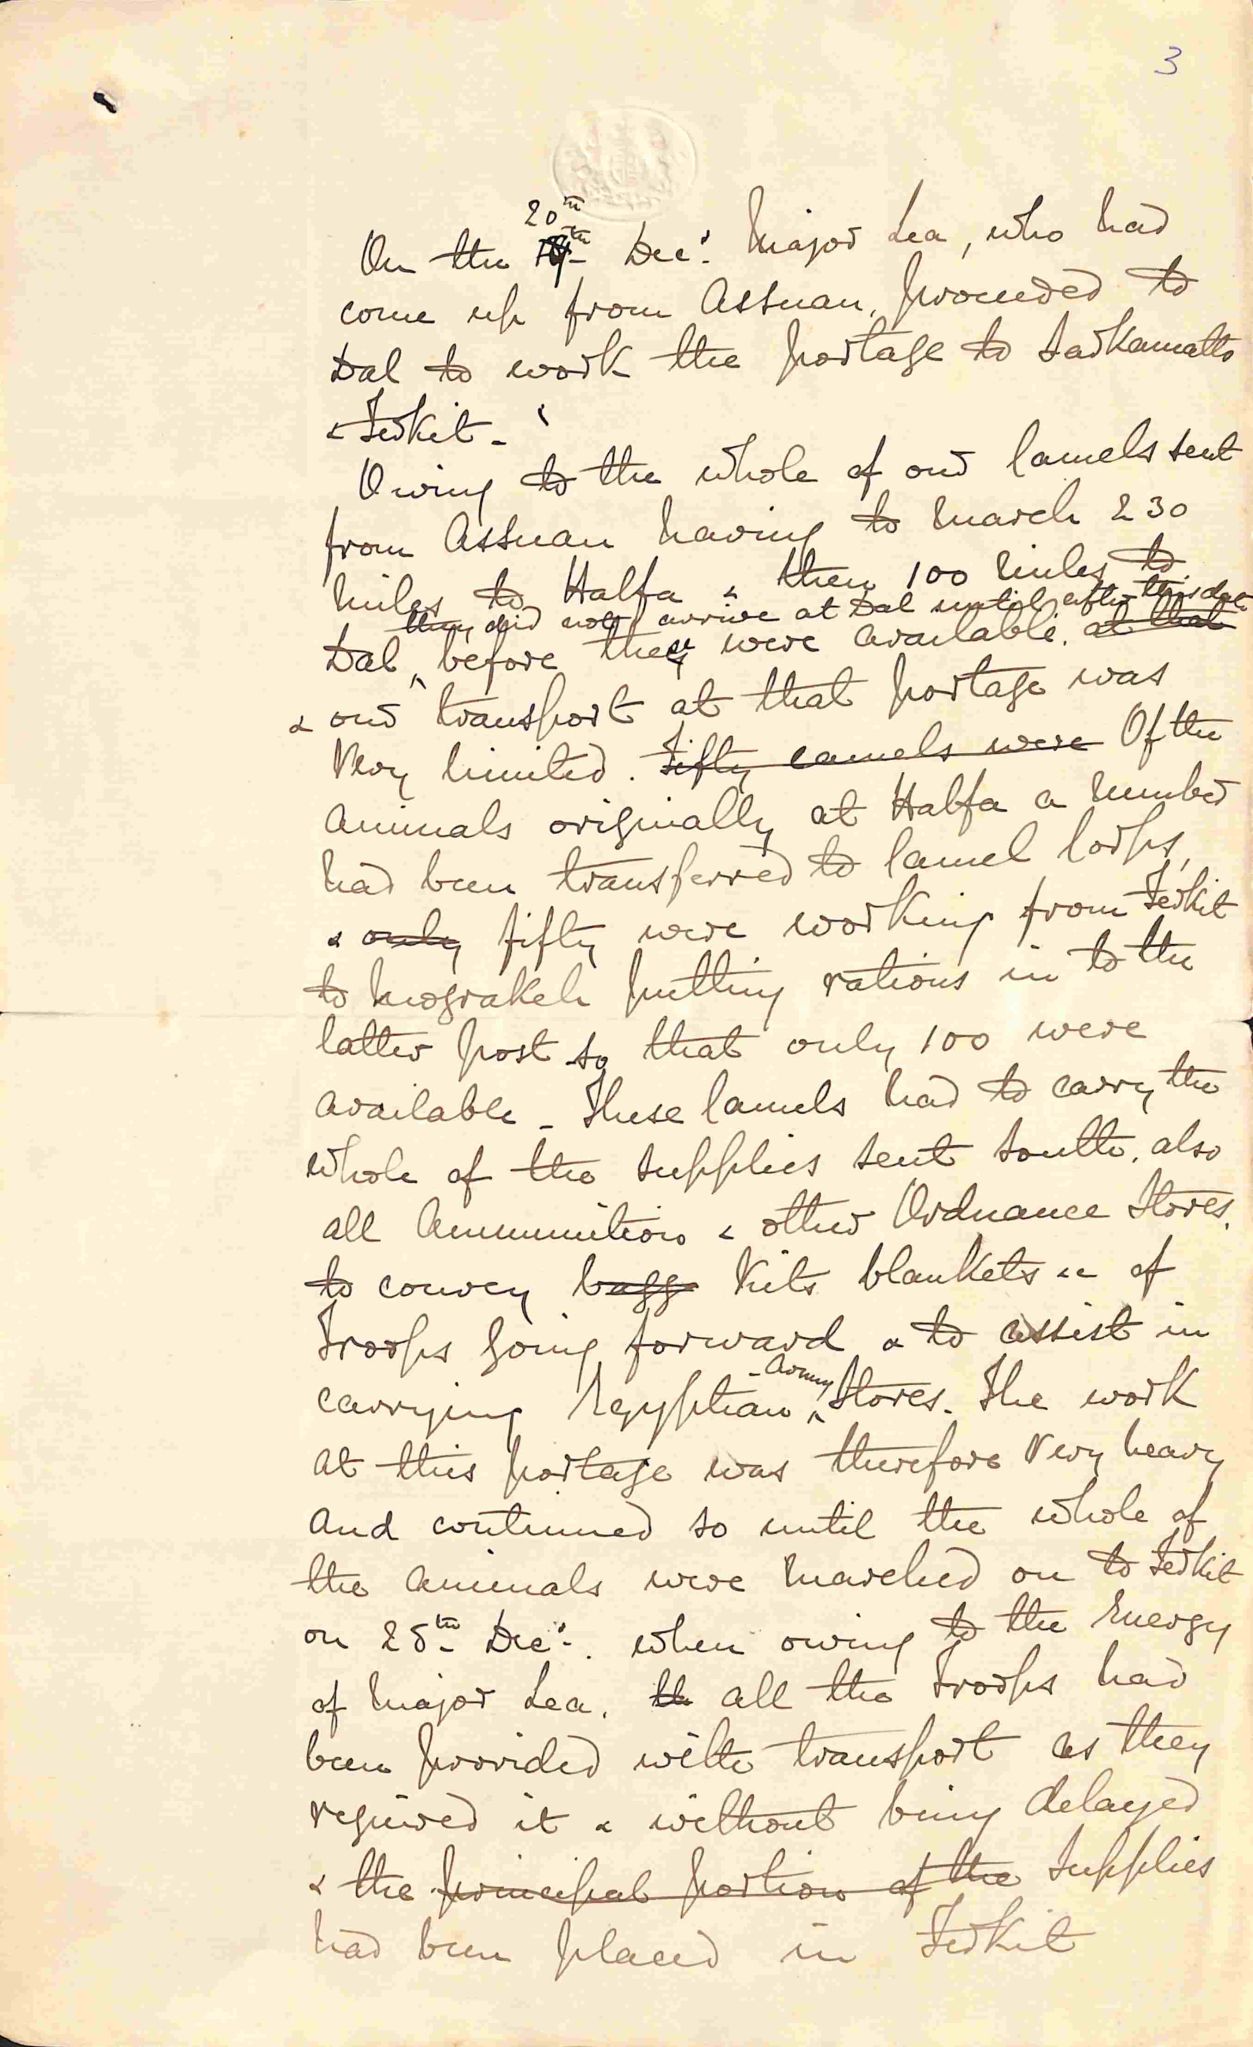 3
On the 20th Decr. Major Lea, who had
come up from Assuan, proceeded to
Dal to work the portage to Sarkamatto
& Ferket -
Owing to the whole of our Camels sent
from Assuan having to march 230
miles to Halfa & then 100 miles to
they did not arrive at Dal until after this date
Dal, before these were available. at that
& our transport at that portage was
Very limited. Fifty camels were Of the
Animals originally at Halfa a number
had been transferred to Camel Corps,
& only fifty were working from Ferkit
to Mograkeh putting rations in to the
latter post so that only 100 were
available - These Camels had to carry the
whole of the supplies sent South, also
all Ammunition & other Ordnance Stores,
to convey bagg Kits blankets &c of
Troops going forward & to assist in
carrying Egyptian -Army Stores. The work
at this portage was therefore Very heavy
and continued so until the whole of
the animals were marched on to Ferkit
on 28th Decr. when owing to the Energy
of Major Lea, th all the Troops had
been provided with transport as they
required it & without being delayed
& the principal portion of the Supplies
had been placed in Ferkit